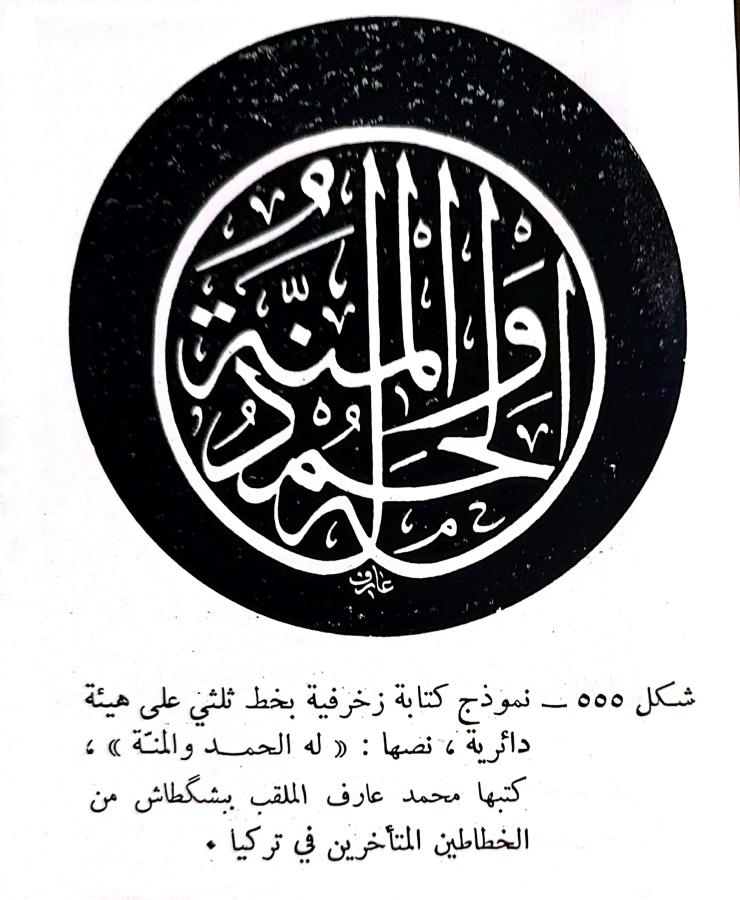 له الحمد والمنّة
عارف
شكل ٥٥٥ ــ نموذج كتابة زخرفية بخط ثلثي على هيئة
دائرية ، نصها : « له الحمــد والمنّة » ،
كتبها محمد عارف الملقب ببشگطاش من
الخطاطين المتأخرين في تركيا ٠